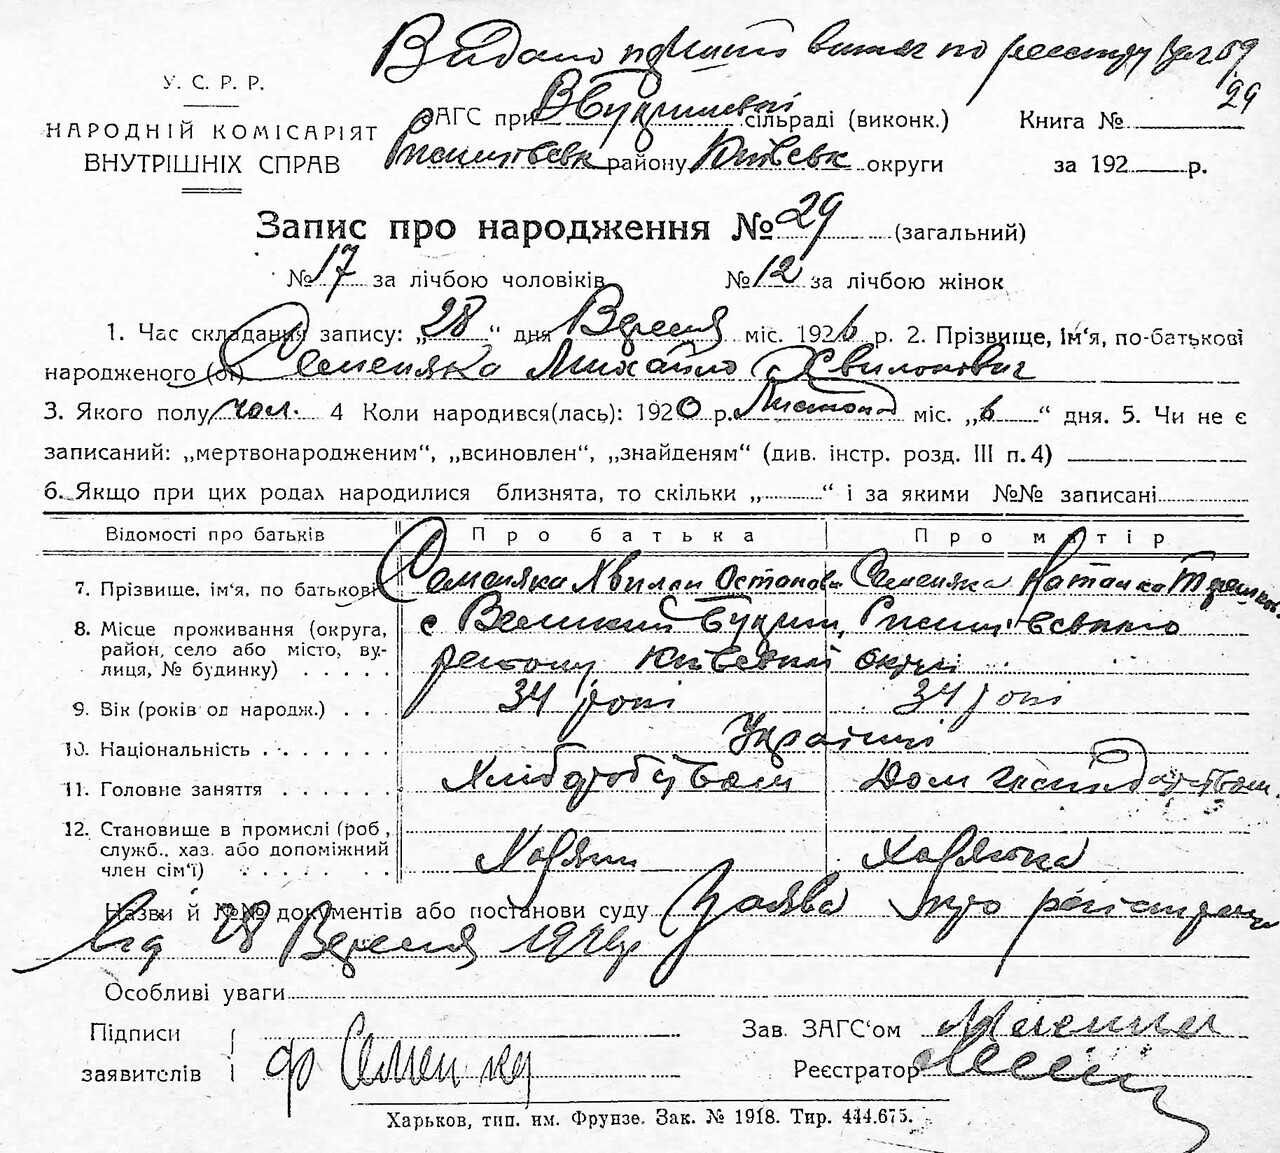 Видано витяг по реєстру за № 59
29
У. С. Р. Р.
НАРОДНІЙ КОМІСАРІЯТ
ВНУТРІШНІХ СПРАВ
ЗАГС при В Букринській сільраді (виконк.)
Книга №
Ржищівськ району Київськ округи
за 192 р.
Запис про народження № 29 (загальний)
№ 17 за лічбою чоловіків № 12 за лічбою жінок
1. Час складання запису: „28“ дня Вересня міс. 1926 р. 2. Прізвище, ім‘я, по-батькові
народженого (ої) Семеняка Михайло Хвилонович
3. Якого полу чол. 4 Коли народився(лась): 1920 р. Листопад міс. „6“ дня. 5. Чи не є
записаний: „мертвонародженим“, „всиновлен“, „знайденям“ (див. інстр. розд. III п. 4)
6. Якщо при цих родах народилися близнята, то скільки „ “ і за якими №№ записані
Відомості про батьків Про батька Про матір
7. Прізвище, ім‘я, по батькові Семеняка Хвилон Остапов Семеняка Наталка
8. Місце проживання (округа, район, село або місто, вулиця, № будинку) с Великий Букрин, Ржищівського
району Київської округи
9. Вік (років од народж.) 34 роки 34 роки
10. Національність Українці
11. Головне заняття Хліборобством Дом господарством
12. Становище в промислі (роб, служб., хаз. або допоміжний член сім‘ї) Хазяїн Хазяйка
Назви й №№ документів або постанови суду Заява про реєстрацію
від 28 Вересня 1926 р
Особливі уваги
Підписи
заявителів
Зав. ЗАГС‘ом
Реєстратор
Харьков, тип. им. Фрунзе. Зак. № 1918. Тир. 444.675.